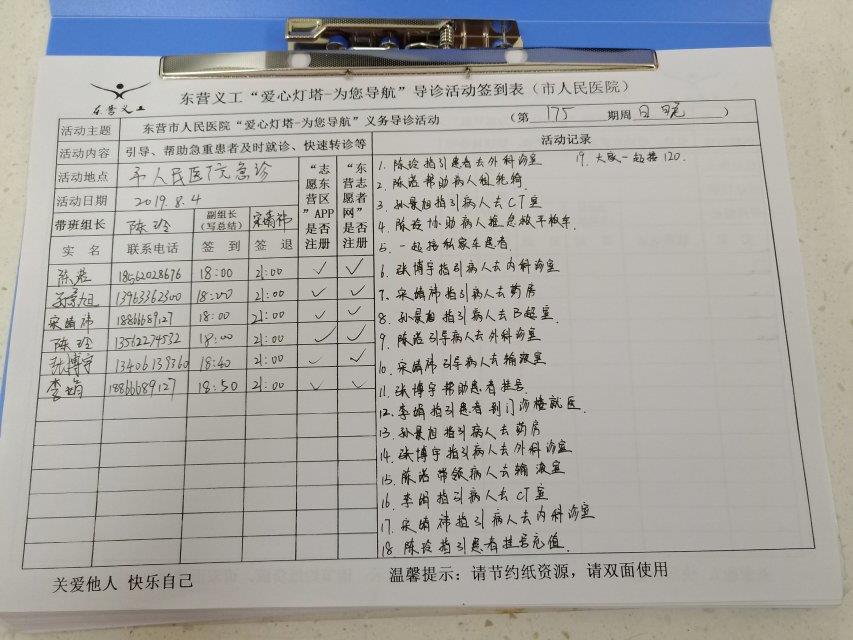 东营义工
东营义工“爱心灯塔-为您导航”导诊活动签到表（市人民医院）
活动主题 东营市人民医院“爱心灯塔-为您导航”义务导诊活动 （第 175 期周 日 晚 ）
活动内容 引导、帮助急重患者及时就诊、快速转诊等 活动记录
活动地点 市人民医院急诊
活动日期 2019.8.4
带班组长 陈玲 副组长（写总结） 宋婧祎
“志愿东营区”APP是否注册
“东营志愿者网”是否注册
实 名 联系电话 签 到 签 退
陈蕊 18562028676 18:00 21:00 ✓ ✓
孙景旭 13963362300 18:00 21:00 ✓ ✓
宋婧祎 18866689127 18:00 21:00 ✓ ✓
陈玲 13512274532 18:00 21:00 ✓ ✓
张博宇 13406139360 18:40 21:00 ✓ ✓
李娟 18866689127 18:50 21:00 ✓ ✓
1. 陈玲指引患者去外科诊室
2. 陈蕊帮助病人租轮椅
3. 孙景旭指引病人去CT室
4. 陈玲协助病人推急救平板车
5. 一起接私家车患者.
6. 张博宇指引病人去内科诊室
7. 宋婧祎指引病人去药房
8. 孙景旭指引病人去B超室.
9. 陈蕊引导病人去外科诊室
10. 宋婧祎引导病人去输液室
11. 张博宇帮助患者挂号.
12. 李娟指引患者到门诊楼就医.
13. 孙景旭指引病人去药房
14. 张博宇指引病人去外科诊室
15. 陈蕊带领病人去输液室
16. 李娟指引病人去CT室
17. 宋婧祎指引病人去内科诊室
18. 陈玲指引患者挂号充值.
19. 大家一起接120.
关爱他人 快乐自己
温馨提示：请节约纸资源，请双面使用